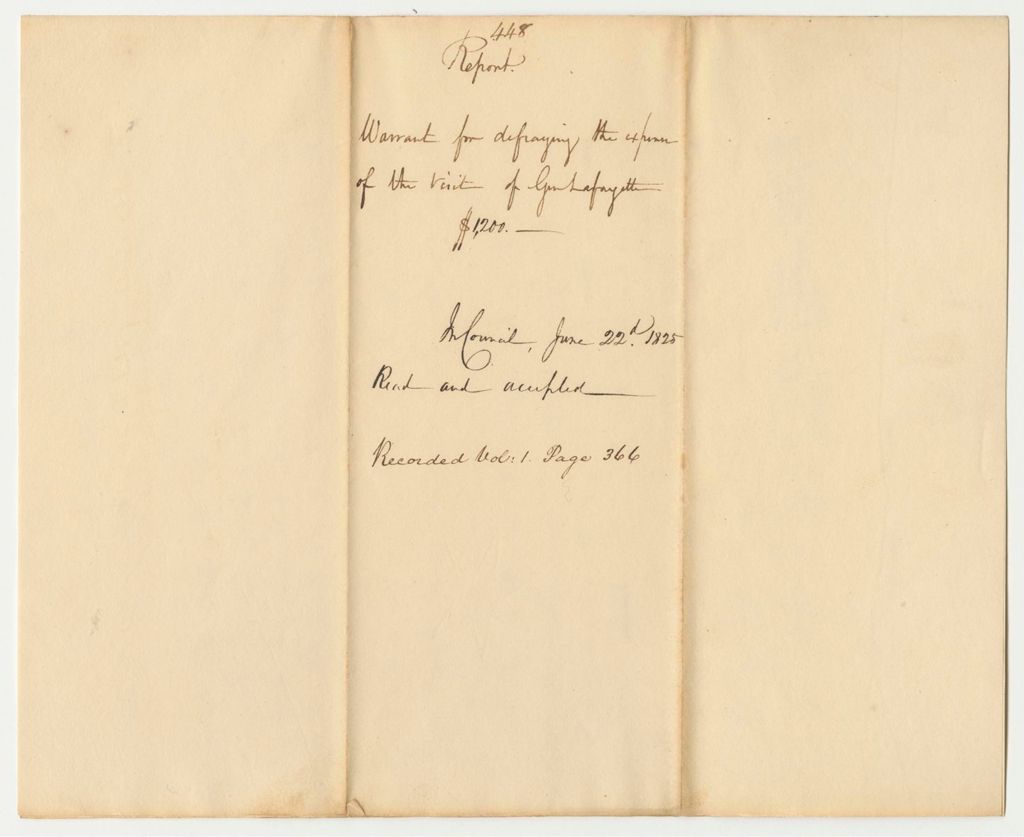 448
Report.
Warrant for defraying the expense
of the visit of Gen Lafayette
$1,200. —
In Council, June 22d. 1825
Read and accepted
Recorded Vol: 1. Page 366